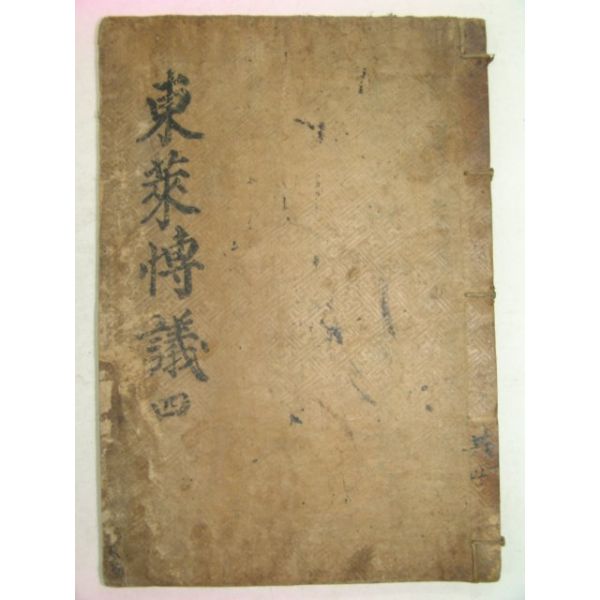 東萊愽議 四